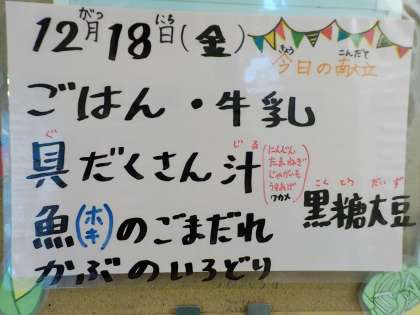 12月18日(金)
がつ にち
きょう こんだて
今日の献立
ごはん・牛乳
ぐ じる
具だくさん汁
にんじん
たまねぎ
じゃがいも
うすあげ
ワカメ
こくとうだいず
黒糖大豆
魚(ホキ)のごまだれ
かぶのいろどり